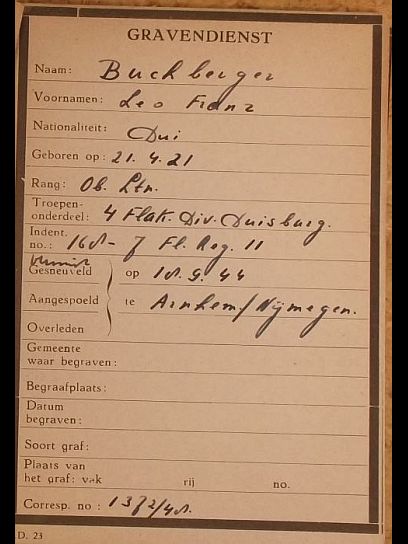 GRAVENDIENST
Naam: Buchberger
Voornamen: Leo Franz
Nationaliteit: Dui
Geboren op: 21.4.21
Rang: Ob. Ltn.
Troepen-
onderdeel: 4 Flak. Div. Duisburg.
Indent.
no.: Fl. Reg. 11
Gesneuveld op 44
Aangespoeld te Arnhem/Nijmegen.
Overleden
Gemeente
waar begraven:
Begraafplaats:
Datum
begraven:
Soort graf:
Plaats van
het graf: vak rij no.
Corresp. no:
D. 23